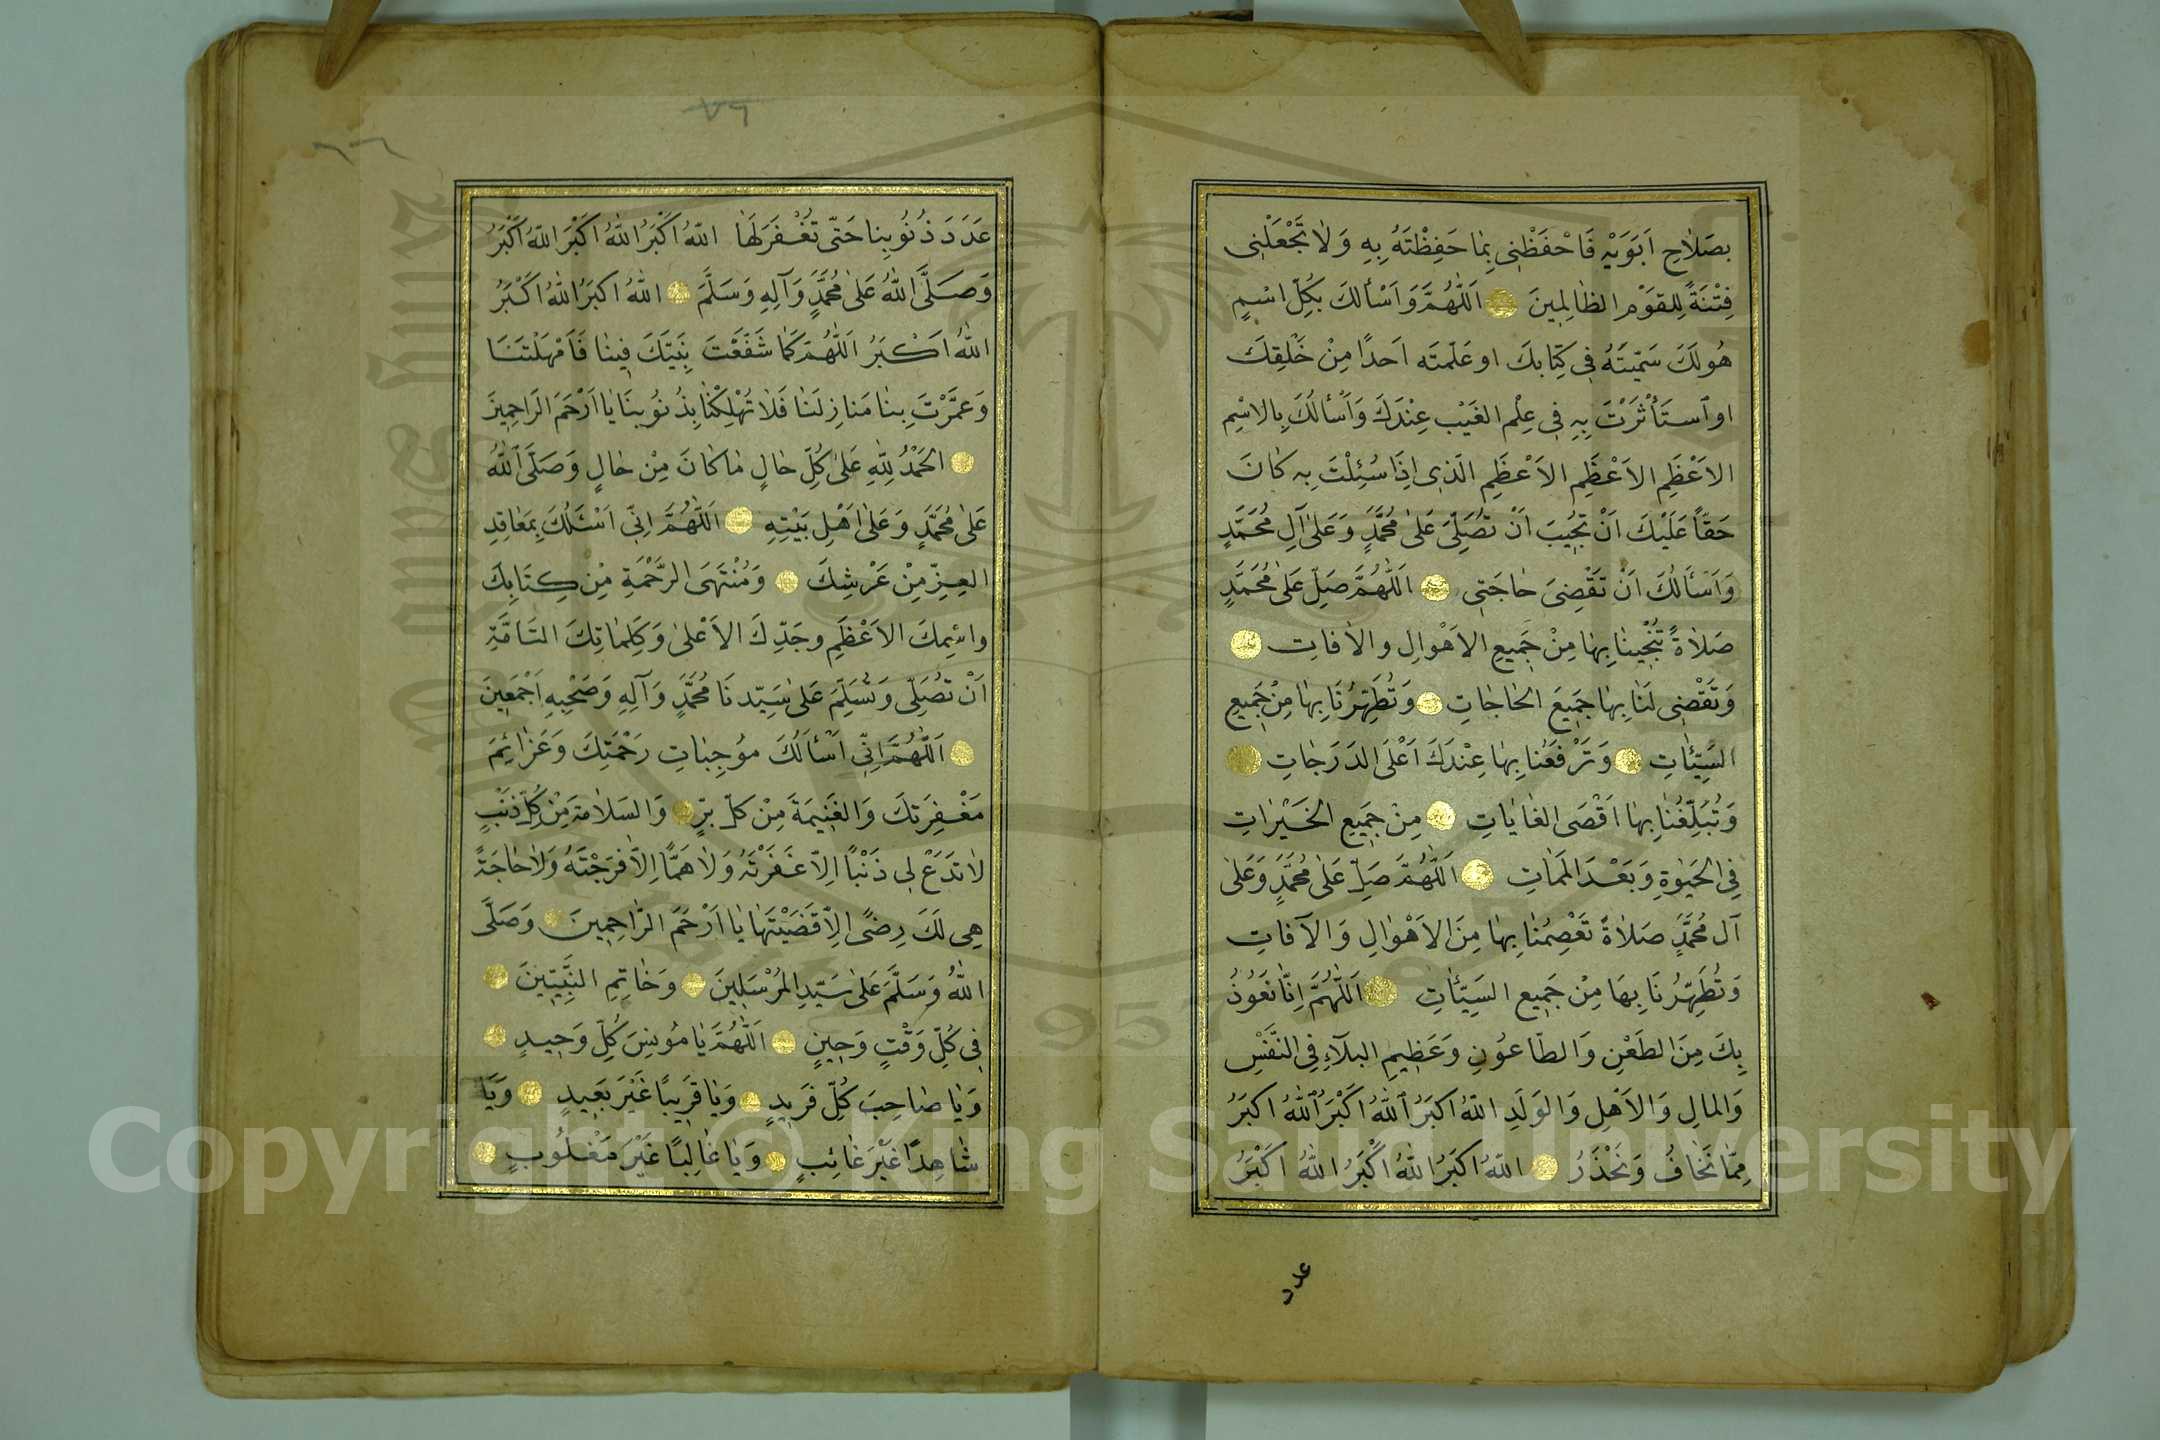 بصَلٰاحِ اَبَوَيْهِ فَاحْفَظْنِى بِمٰا حَفِظْتَهُ بِهِ وَلاٰ تَجْعَلْنِى
فِتْنَةً لِلقَوْمِ الظٰالِمِينَ اَللّٰهُمَّ وَاَسْأَلكَ بِكُلِّ اسْمٍ
هُولَكَ سَمَّيتَهُ فِى كِتٰابكَ او عَلّمتَه اَحدًا مِنْ خَلْقِكَ
اوِ ٱستَأْثَرْتَ بِهِ فِى عِلْمِ الغَيْب عِنْدَكَ وَاَسْأَلُكَ بِالاسْمِ
الاَعْظَمِ الاَعْظَمِ الاَعْظَمِ الَّذِى اِذَا سُئِلْتَ بِه كٰانَ
حَقّاً عَلَيْكَ اَنْ تُجِيبَ اَنْ تُصَلِّىَ عَلىٰ مُحَمَّدٍ وَعَلىٰ آلِ مُحَمَّدٍ
وَاَسْأَلُكَ اَنْ تَقْضِىَ حٰاجَتِى اَللّٰهُمَّ صَلِّ عَلىٰ مُحَمَّدٍ
صَلاٰةً تُنْجِينٰا بِهٰا مِنْ جَمِيعِ الاَهْوٰالِ والاٰفات
وَتَقْضِى لَنٰا بِهٰا جَمِيعَ الحٰاجٰاتِ وَتُطَهِّرُنَا بِهٰا مِنْ جَمِيعِ
السَّيِّئٰاتِ وَتَرْفَعُنٰا بِهٰا عِنْدَكَ اَعْلَى الدَرَجٰاتِ
وَتُبَلِّغُنٰا بِهٰا اَقْصَى الغٰايٰاتِ مِنْ جَمِيعِ الخَيْرٰاتِ
فِى الحَيٰوةِ وَبَعْدَ المَمٰاتِ اَللّٰهُمَّ صَلِّ عَلٰى مُحَمَّدٍ وَعَلىٰ
آل مُحَمَّدٍ صَلاٰةً تَعْصِمُنٰا بِهٰا مِنَ الاَهْوٰالِ وَالآفٰاتِ
وَتُطَهِّرُنَا بِهَا مِنْ جَمِيعِ السَيِّئٰاتِ اَللّٰهُمَّ اِنّٰا نَعُوذُ
بِكَ مِنَ الطَعْنِ وَالطّٰاعُونِ وَعَظِيمِ البلآءِ فِى النَّفْسِ
وَالمٰالِ وَالاَهْلِ وَالوَلَدِ اللّٰهُ اكبَرُ ٱللّٰهُ اَكْبَرُ ٱللّٰهُ اكبَرُ
مِمّٰا نَخٰافُ وَنَحْذَرُ اللّٰهُ اكبَرُ اللّٰهُ اَكْبَرُ اللّٰهُ اَكْبَرُ
عدد
٧٦
عَدَدَ ذُنُوبِنا حَتّى تَغْفِرَ لَهٰا اللّٰهُ اَكْبَرُ اللّٰهُ اَكْبَرُ اللّٰهُ اَكْبَرُ
وَصَلَّى اللّٰهُ عَلىٰ مُحَمَّدٍ وَآلِهِ وَسَلَّمَ اللّٰهُ اكبَرُ اللّٰهُ اَكْبَرُ
اللّٰهُ اَكْبَرُ اَللّٰهُمَّ كَمٰا شَفَّعْتَ نَبِيَّكَ فِينٰا فَاَمْهَلْتَنَا
وَعمَّرْتَ بِنٰا مَنازِلَنٰا فَلاٰ تُهْلِكْنٰا بِذُنُوبِنَا يٰا اَرْحَمَ الرَاحِمِينَ
الحَمْدُ لِلّٰهِ عَلىٰ كُلِّ حٰالٍ مٰا كٰانَ مِنْ حٰالٍ وَصَلَّى ٱللّٰهُ
عَلىٰ مُحَمَّدٍ وَعَلىٰ اَهْلِ بَيْتِهِ اَللّٰهُمَّ اِنِّى اَسْئَلُكَ بِمَعٰاقِدِ
العِزِّ مِنْ عَرْشِكَ وَمُنْتَهَى الرَّحْمَةِ مِن كِتَابِكَ
واسْمِكَ الاَعْظَمِ وجَدِّكَ الاَعْلىٰ وَكَلِمٰاتِكَ التَامَّةِ
اَنْ تُصَلِّى وَتُسَلِّمَ عَلىٰ سَيِّدنَا مُحَمَّدٍ وَآلِهِ وَصَحْبِهِ اَجْمَعِينَ
اَللّٰهُمَّ اِنِّى اَسْأَلُكَ مُوجِبٰاتِ رَحْمَتِكَ وَعَزٰائِمَ
مَغْفِرَتِكَ وَالغَنِيمَةَ مِنْ كلّ برٍّ وَالسَلاٰمَةَ مِنْ كُلِّ ذَنْبٍ
لاٰ تَدَعْ لِى ذَنْبًا اِلاّ غَفَرْتَهُ وَلاٰ هَمًّا اِلاّ فرَجْتَهُ وَلاٰ حٰاجَةً
هِى لَكَ رِضىً الِاّ قَضَيْتَهٰا يٰا اَرْحَمَ الرّٰاحِمِينَ وَصَلَّى
اللّٰهُ وَسَلَّمَ عَلىٰ سَيِّدِ المُرْسَلِينَ وَخٰاتِمِ النَّبِيِّينَ
فِى كُلِّ وَقْتٍ وَحِينٍ اَللّٰهُمَّ يَا مُونِسَ كُلِّ وَحِيدٍ
وَيٰا صٰاحِبَ كُلِّ فَرِيدٍ وَيٰا قَرِيبًا غَيْرَ بَعِيدٍ وَيَا
شٰاهِدًا غَيْرَ غٰائِبٍ وَيٰا غٰالِبًا غَيْرَ مَغْلُوبٍ
Copyright © King Saud University